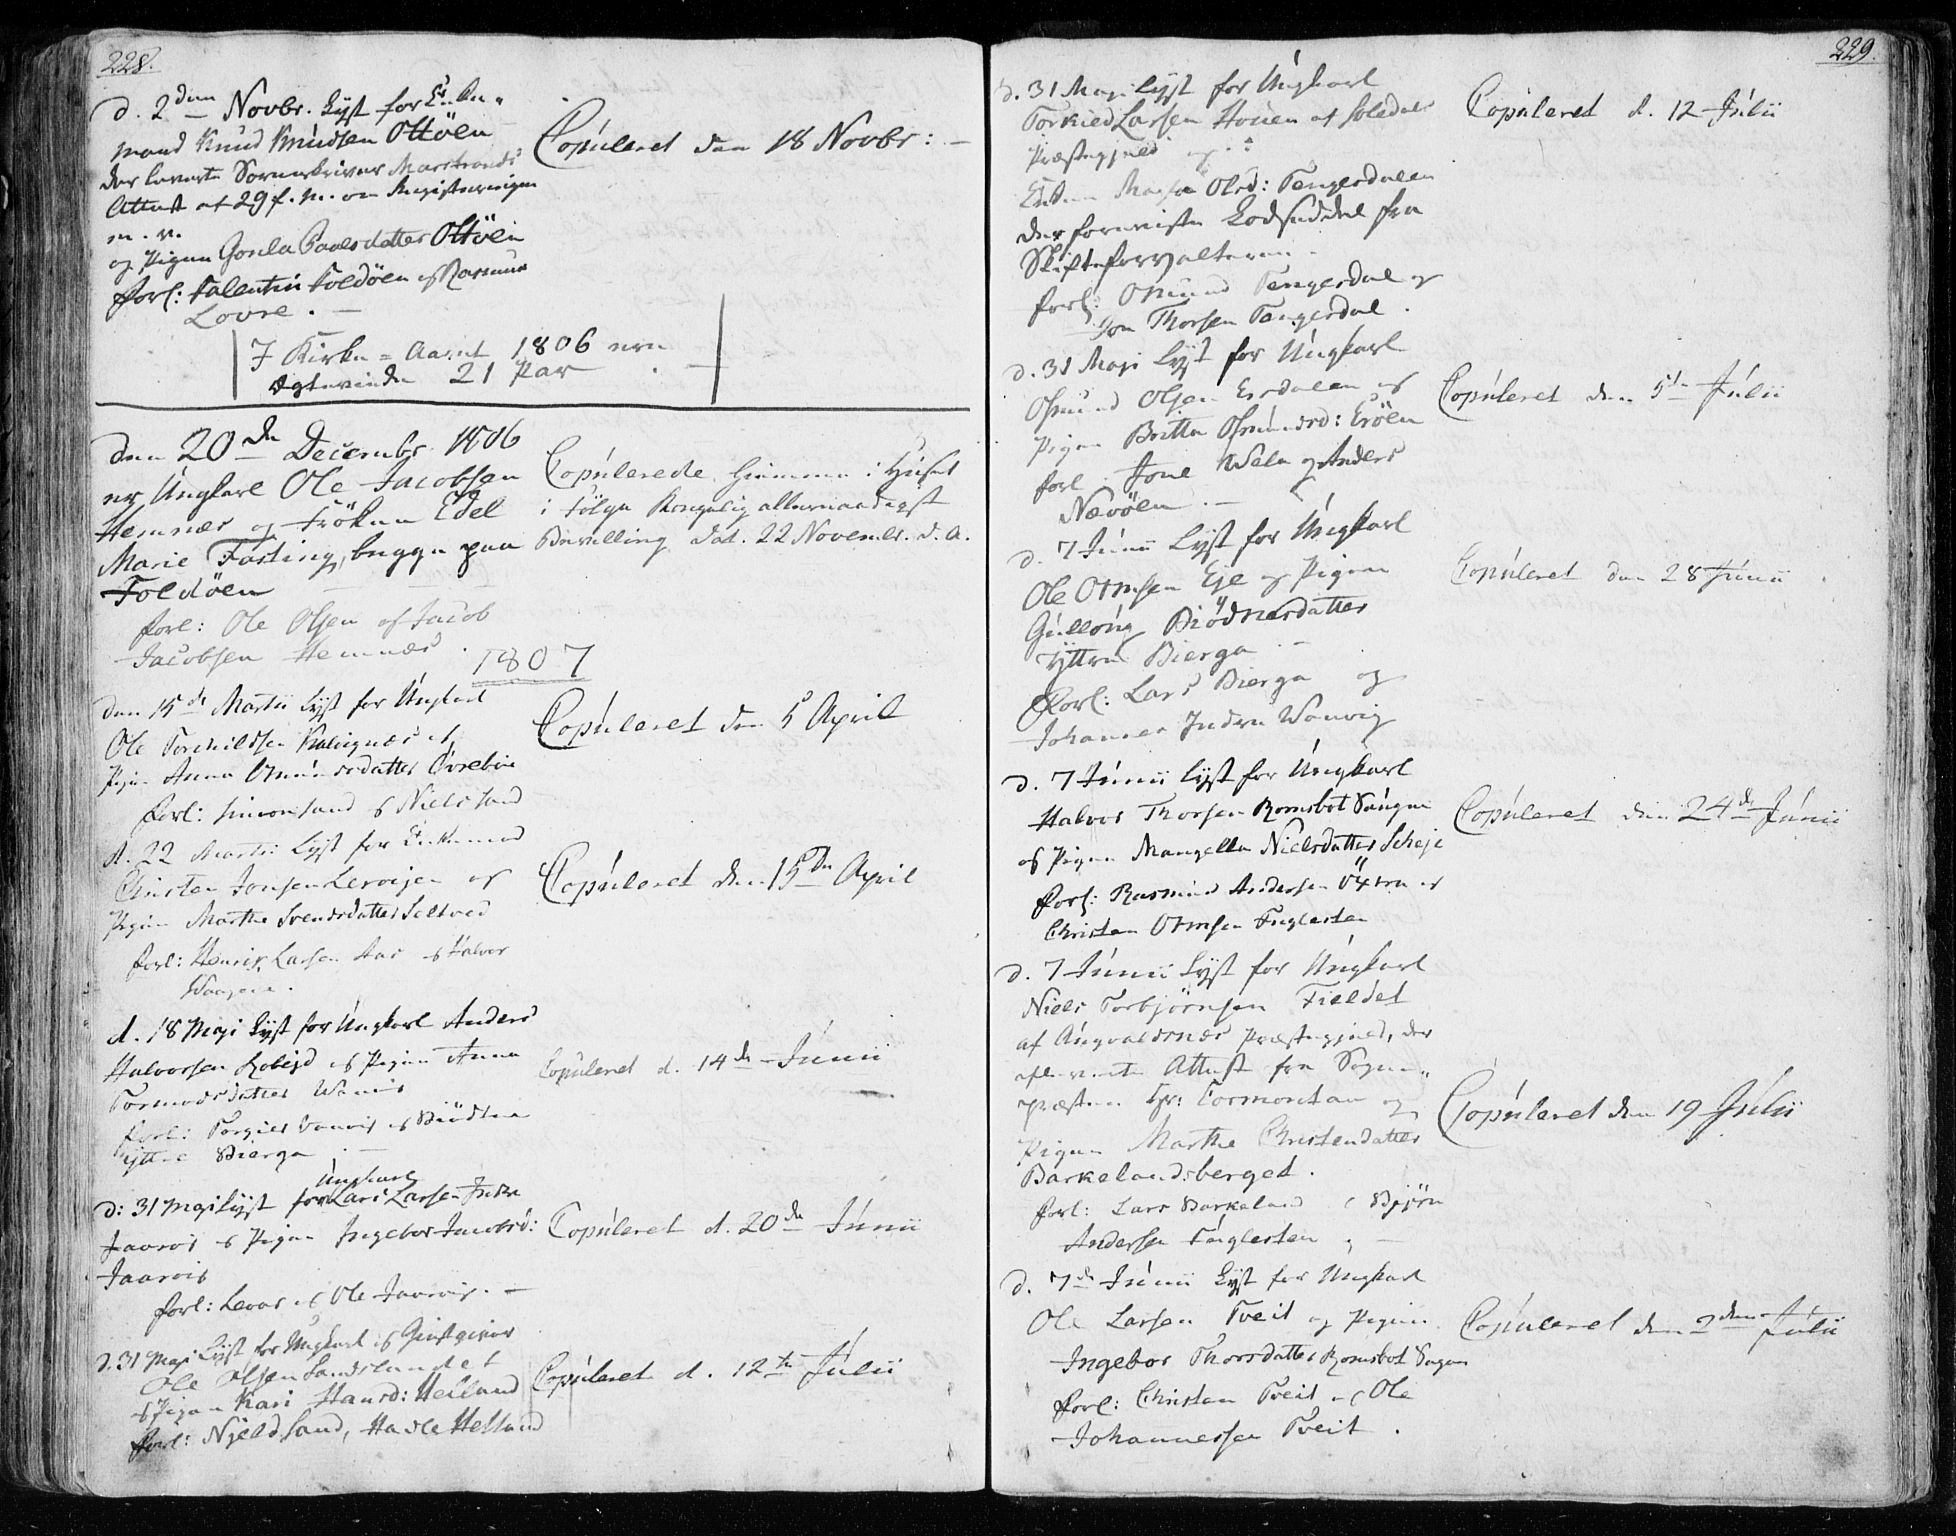 228.
d. 2den Novbr. Lyst for Enke-
mand Knud Knudsen Ottöen
der leverte Sorenskriver Marstrands
Attest af 29 f. m. om Registeringen
m. v.
og Pigen Gonla Paalsdatter Ottöen
forl: Falentin Foldöen og Rasmus
Lovre.
Copúleret den 18 Novbr:
I Kirke-Aaret 1806 ere
Ægteviede 21 Par
den 20de Decembr 1806
er Úngkarl Ole Jacobsen
Hemnæs og Fröken Edel
Marie Fasting, begge paa
Foldöen
forl: Ole Olsen og Jacob
Jacobsen Hemnæs.
Copúlerede hiemme i Húset
i Fölge Kongelig allernaadigst
Bevilling dat. 22 Novembr. d. A.
1807
den 15de Martii Lyst for Úngkarl
Ole Torchildsen Kalvignæs og
Pigen Anna Osmúndsdatter Övreböe
forl: Simon Sand og Niels Sand
Copúleret den 5 April
d. 22 Martii Lyst for Enkemand
Christen Jonsen Lervigen og
Pigen Marthe Svendsdatter Seltved
forl: Henrik Larsen Aas og Halvor
Waagene.
Copúleret den 15de April
d. 18 Maji Lyst for Úngkarl Anders
Halvorsen og Pigen Anna
Tormodsdatter
forl: Torgils og
Yttre Bierga
Copúleret d. 14de Júnii
d: 31 Maji Lyst for Úngkarl Lars Larsen Indre
Jaarvig og Pigen Ingebor Jacobsd:
Jaarvig
forl: og Ole Jaarvig.
Copúleret d. 20de Júnii
d. 31 Maji Lyst for Úngkarl og Giestgiver
Ole Olsen Sandslandet
og Pigen Kari Hansd: Helland
forl: Njeld Sand, Helland
Copúleret d. 12te Júlii
229.
d. 31 Maji Lyst for Úngkarl
Torkied Larsen Houen af
Præstegjeld og
Enken Olsd: Tengesdalen
der foreviste Lodseddel fra
Skifteforvalteren.
forl: Osmund Tengesdal og
Jon Thorsen Tengesdal.
Copúleret d. 12 Júlii
d. 31 Maji Lyst for Úngkarl
Osmúnd Olsen og
Pigen Britta Osmúndsd: Eröen
forl og Anders
Nævöen.
Copúleret den 5te Júlii
d. 7 Júnii Lyst for Úngkarl
Ole Ormsen Eje og Pigen
Gúllong
Yttre Bierga
forl: Lars Bierga og
Johannes Indre
Copúleret den 28 Júnii
d. 7 Júnii Lyst for Úngkarl
Halvor Thorsen Romsbot Saúgen
og Pigen Mangella Nielsdatter Scheje
forl: Rasmús Andersen og
Christen Ormsen Fuglesten
Copúleret den 24de Júnii
d. 7 Júnii Lyst for Úngkarl
Niels Torbjörnsen Fieldet
af Aúgvaldsnæs Præstegjeld, der
afleverte Attest fra Sogne-
præsten Hr: Tormontan og
Pigen Marthe Christendatter
Barkelandsberget.
forl: Lars Barkeland og Bjørn
Andersen Fúglesten
Copúleret den 19 Júlii
d. 7de Júnii Lyst for Ungkarl
Ole Larsen Tveit og Pigen
Ingebor Thorsdatter Romsbot Saugen
forl: Christen Tveit og Ole
Johannessen Tveit.
Copúleret den 2den Júlii